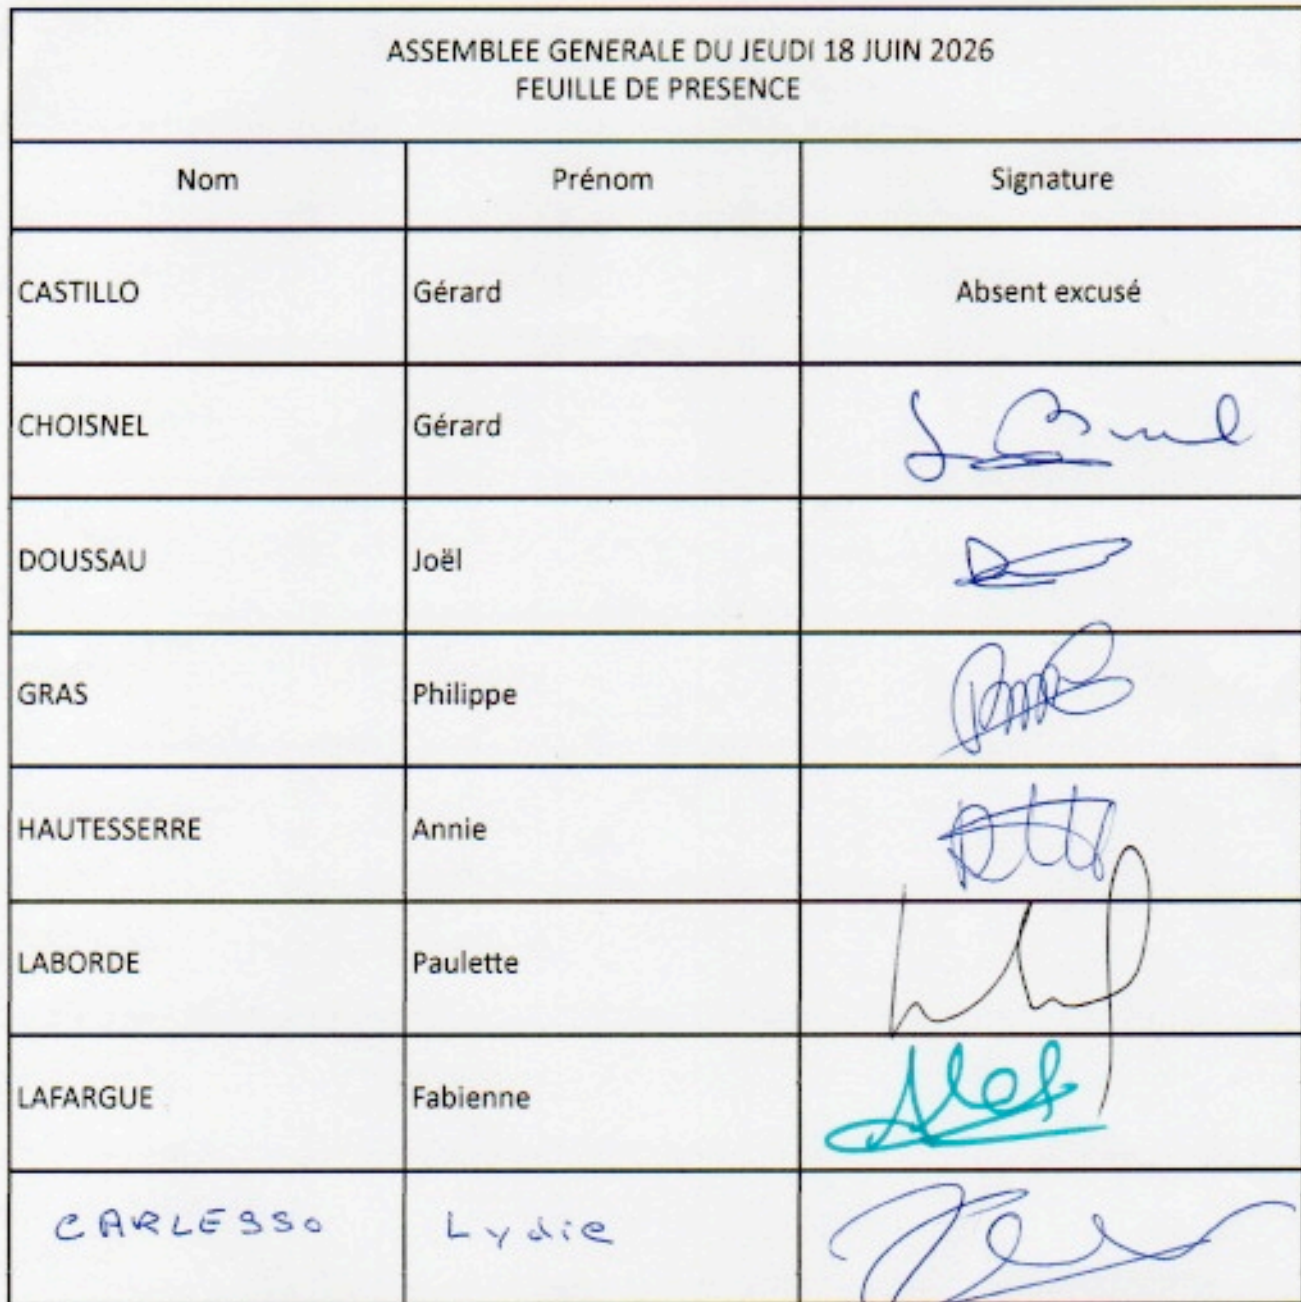 ASSEMBLEE GENERALE DU JEUDI 18 JUIN 2026
FEUILLE DE PRESENCE
Nom Prénom Signature
CASTILLO Gérard Absent excusé
CHOISNEL Gérard
DOUSSAU Joël
GRAS Philippe
HAUTESSERRE Annie
LABORDE Paulette
LAFARGUE Fabienne
CARLESSO Lydie